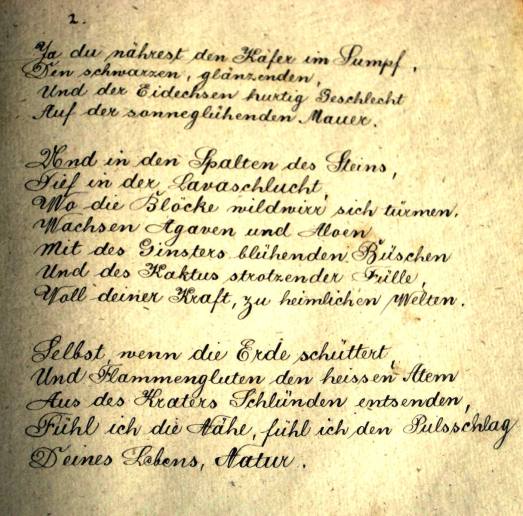 2.
Ja du nährest den Käfer im Sumpf,
Den schwarzen, glänzenden,
Und der Eidechsen hurtig Geschlecht
Auf der sonneglühenden Mauer.
Und in den Spalten des Steins,
Tief in der Lavaschlucht,
Wo die Blöcke wildwirr sich türmen,
Wachsen Agaven und Aloen
Mit des Ginsters blühenden Büschen
Und des Kaktus strotzender Fülle,
Voll deiner Kraft, zu heimlichen Welten.
Selbst, wenn die Erde schüttert,
Und Flammengluten den heissen Atem
Aus des Kraters Schlünden entsenden,
Fühl ich die Nähe, fühl ich den Pulsschlag
Deines Lebens, Natur.